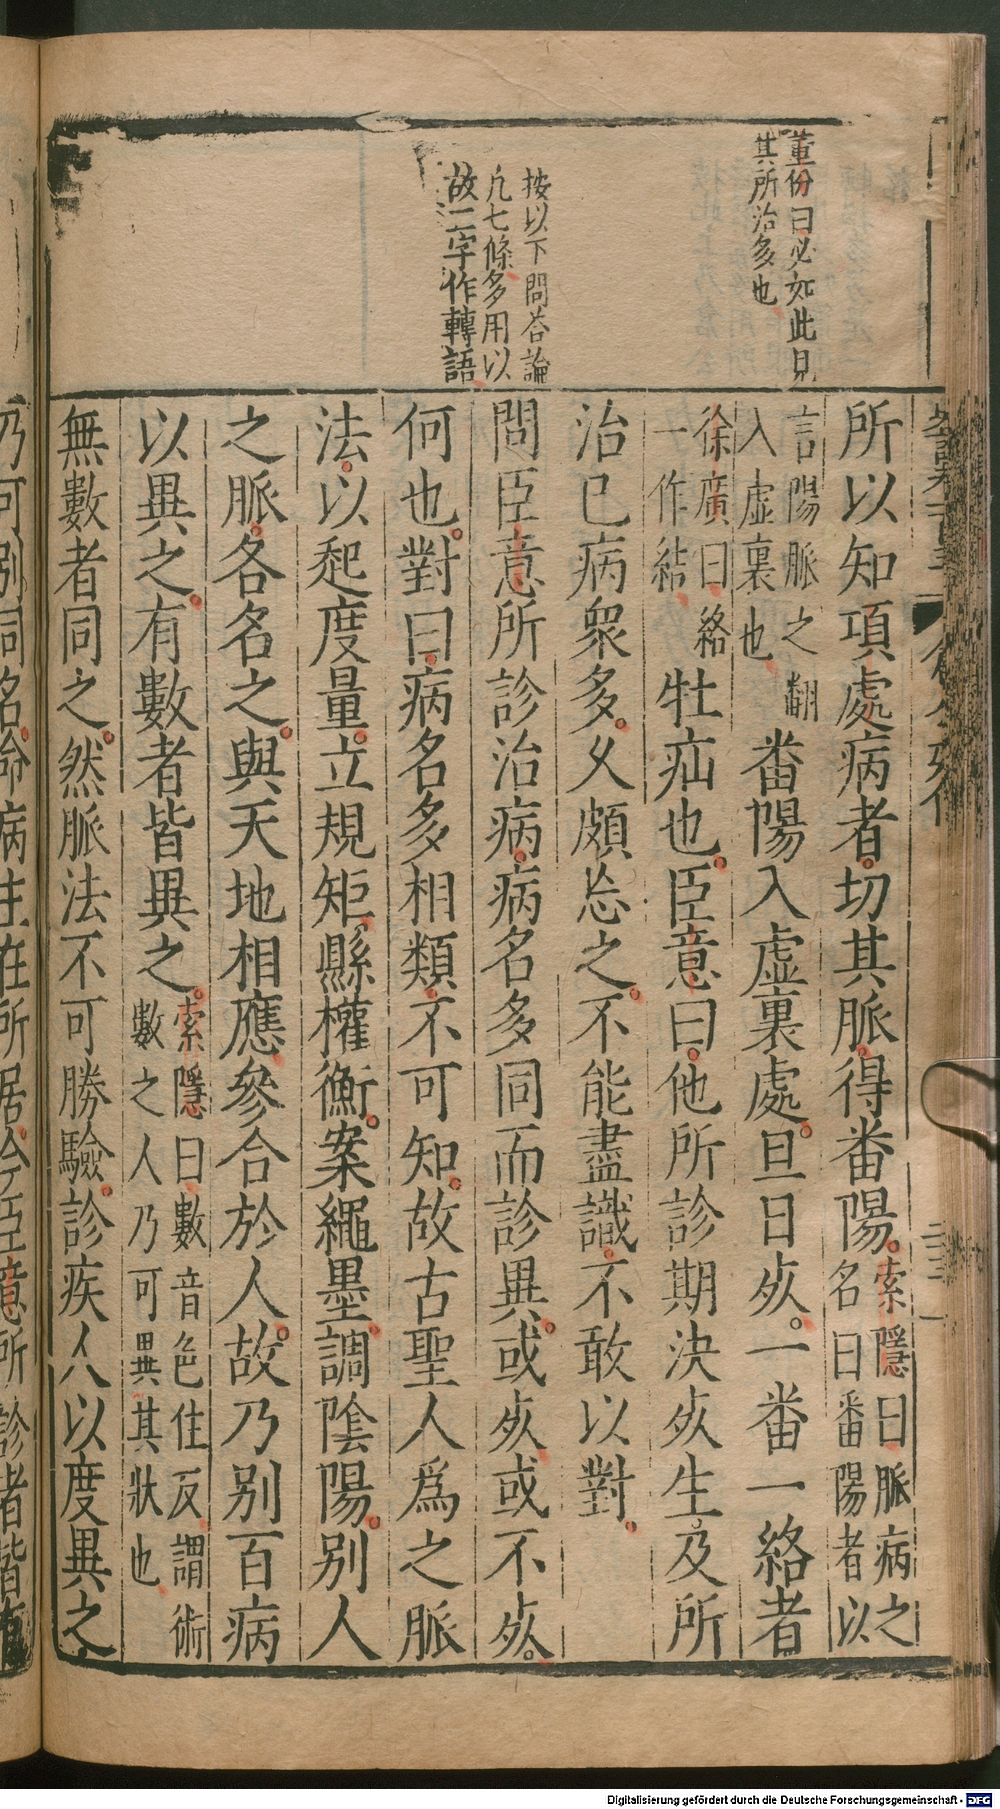 董份曰必如此見
其所治多也
按以下問荅論
凡七條多用以
故二字作轉語
所以知項處病者切其脈得番陽索隱曰脈病之名曰番陽者以
言陽脈之翻入虛裏也番陽入虛裏處旦日死一番一絡者
徐廣曰絡一作結牡疝也臣意曰他所診期決死生及所
治已病衆多久頗忘之不能盡識不敢以對
問臣意所診治病病名多同而診異或死或不死
何也對曰病名多相類不可知故古聖人爲之脈
法以起度量立規矩縣權衡案繩墨調陰陽別人
之脈各名之與天地相應參合於人故乃別百病
以異之有數者皆異之索隱曰數音色住反謂術數之人乃可異其狀也
無數者同之然脈法不可勝驗診疾人以度異之
乃可別同名命病主在所居今臣意所診者皆有
Digitalisierung gefördert durch die Deutsche Forschungsgemeinschaft - DFG